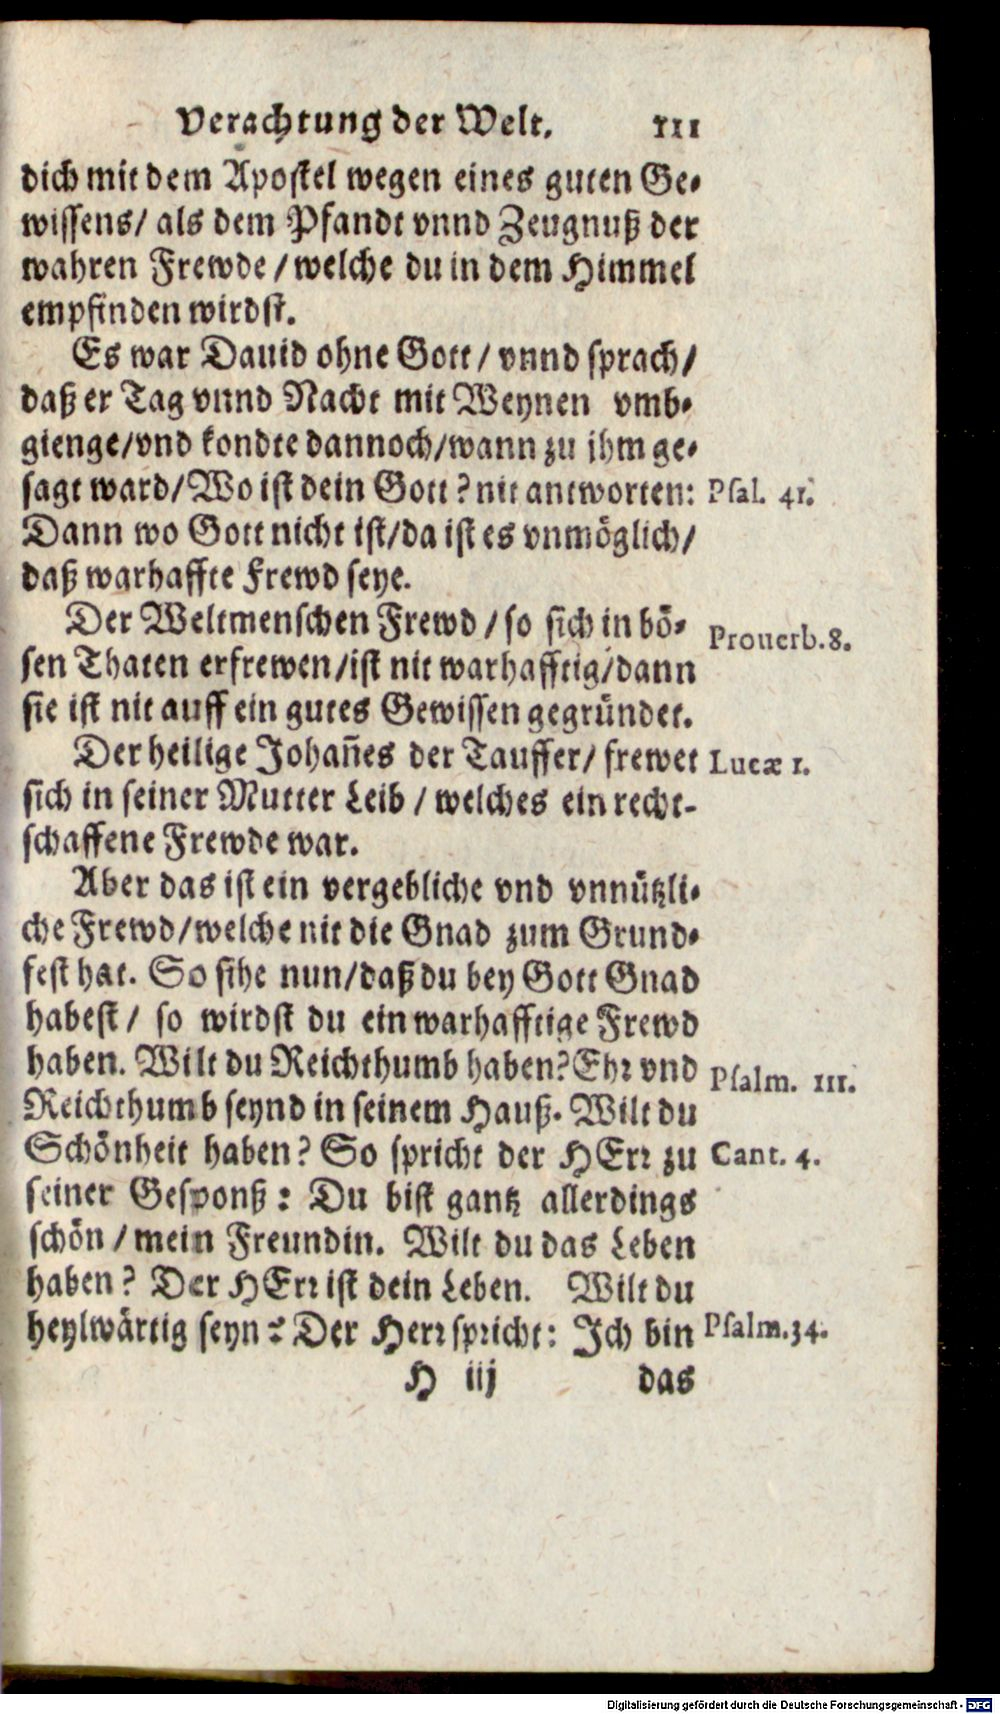 Verachtung der Welt. 111
dich mit dem Apostel wegen eines guten Ge-
wissens/ als dem Pfandt vnnd Zeugnuß der
wahren Frewde / welche du in dem Himmel
empfinden wirdst.
Es war Dauid ohne Gott / vnnd sprach /
daß er Tag vnnd Nacht mit Weynen vmb-
gienge/vnd kondte dannoch/wann zu jhm ge-
sagt ward/Wo ist dein Gott? nit antworten: Psal. 41.
Dann wo Gott nicht ist/da ist es vnmöglich/
daß warhaffte Frewd seye.
Der Weltmenschen Frewd / so sich in bö- Prouerb. 8.
sen Thaten erfrewen/ist nit warhafftig/dann
sie ist nit auff ein gutes Gewissen gegründet.
Der heilige Johañes der Tauffer/ frewet Lucæ 1.
sich in seiner Mutter Leib / welches ein recht-
schaffene Frewde war.
Aber das ist ein vergebliche vnd vnnützli-
che Frewd/welche nit die Gnad zum Grund-
fest hat. So sihe nun/daß du bey Gott Gnad
habest / so wirdst du ein warhafftige Frewd
haben. Wilt du Reichthumb haben? Ehr vnd Psalm. 111.
Reichthumb seynd in seinem Hauß. Wilt du
Schönheit haben? So spricht der HErr zu Cant. 4.
seiner Gesponß: Du bist gantz allerdings
schön / mein Freundin. Wilt du das Leben
haben? Der HErr ist dein Leben. Wilt du
heylwärtig seyn? Der Herr spricht: Jch bin Psalm. 34.
H iij das
Digitalisierung gefördert durch die Deutsche Forschungsgemeinschaft - DFG